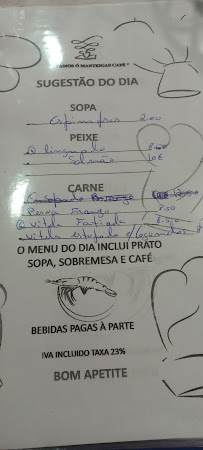 AMOS O MANTEIGAS CAFÉ
SUGESTÃO DO DIA
SOPA
Espinafres 2.00
PEIXE
Salmão 10€
CARNE
Perna Frango 7.50
Vitela
Vitela estufada c/
O MENU DO DIA INCLUI PRATO
SOPA, SOBREMESA E CAFÉ
BEBIDAS PAGAS À PARTE
IVA INCLUIDO TAXA 23%
BOM APETITE